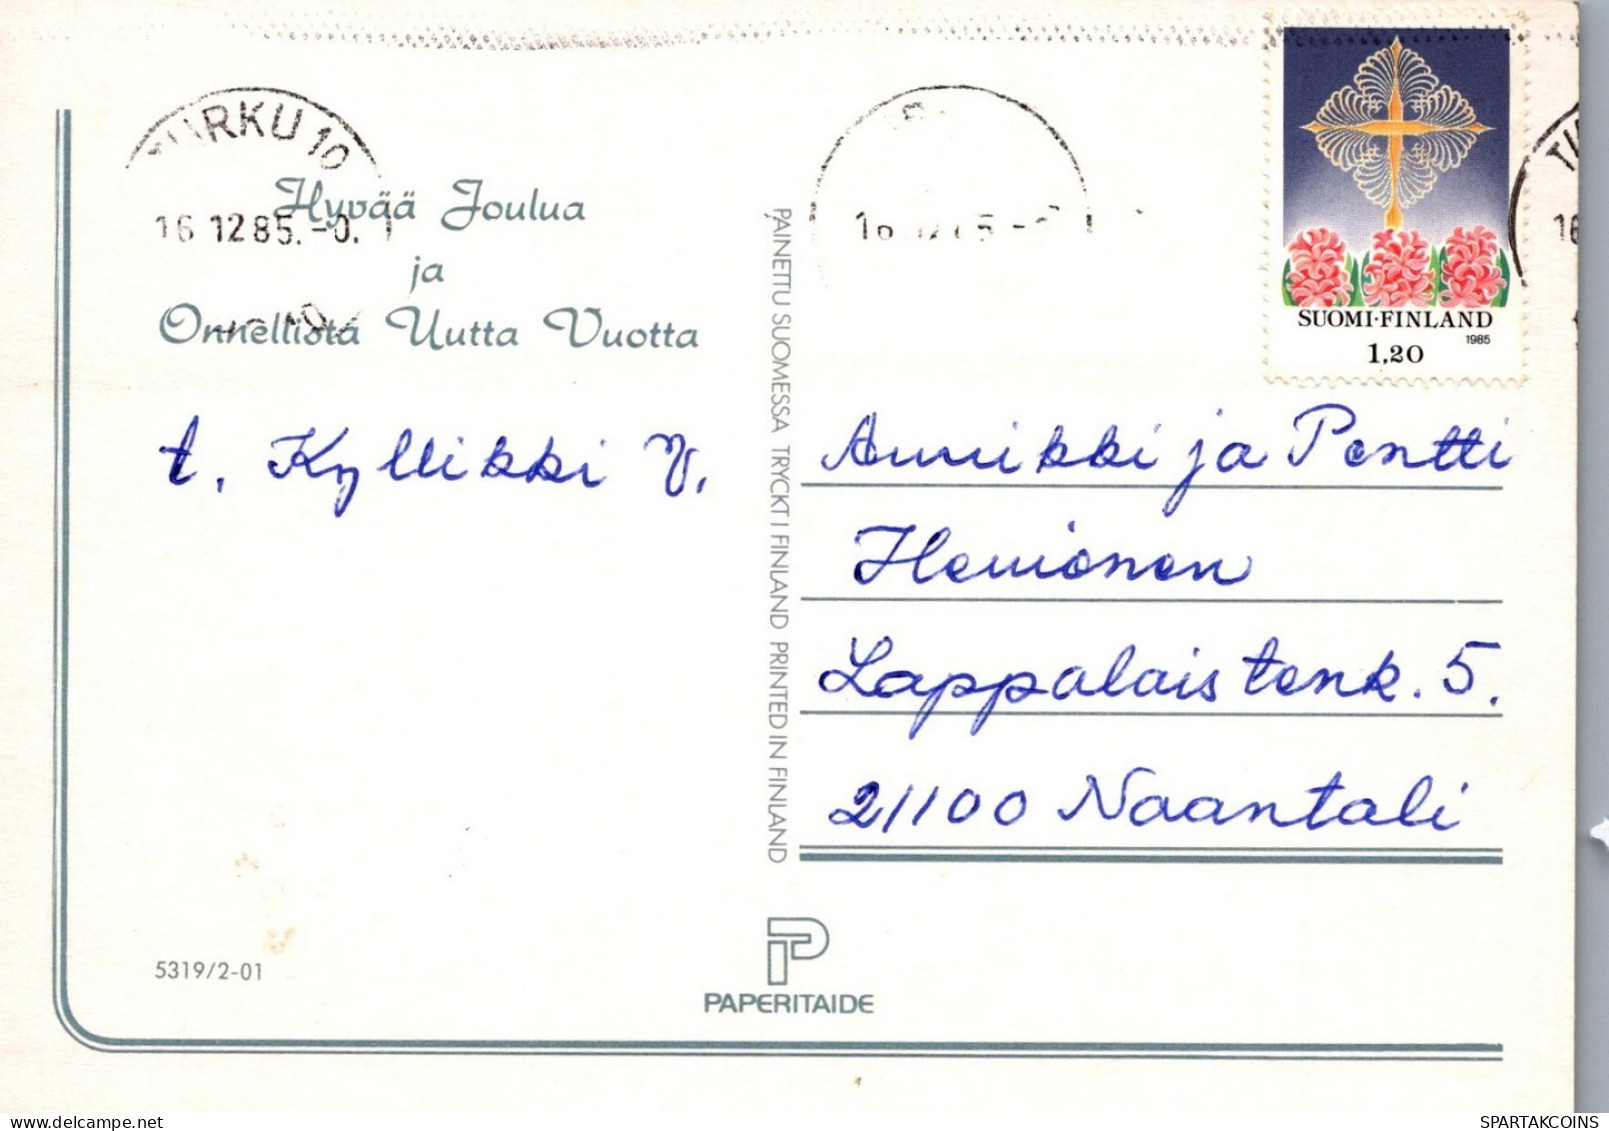 TURKU 10
16 12 85.-0.
Hyvää Joulua
ja
Onnellista Uutta Vuotta
t. Kyllikki V.
PAINETTU SUOMESSA TRYCKT I FINLAND PRINTED IN FINLAND
SUOMI·FINLAND
1985
1,20
Annikki ja Pentti
Heinonen
Lappalaistenk. 5.
21100 Naantali
5319/2-01
PAPERITAIDE
SPARTAKCOINS